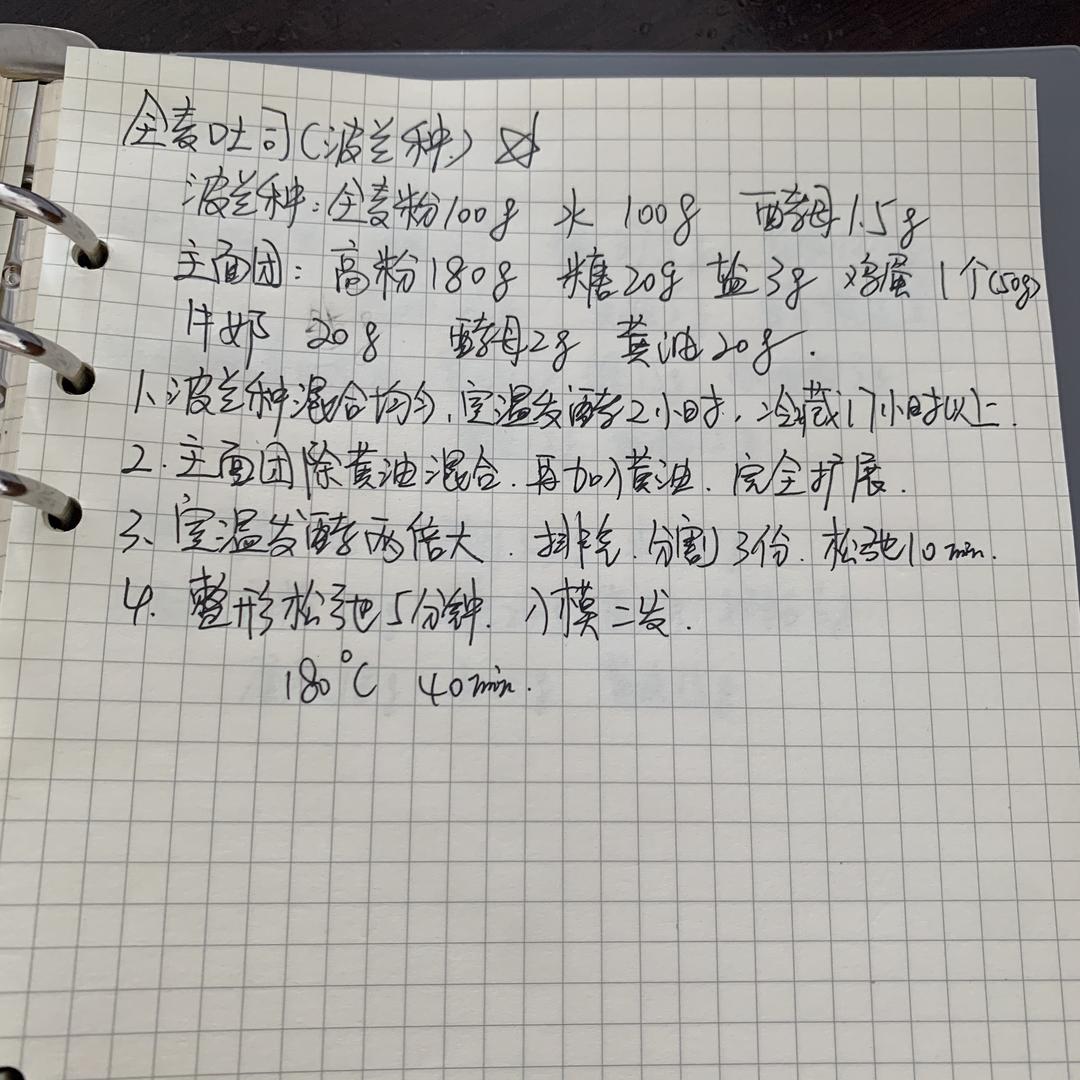 全麦吐司(波兰种) ☆
波兰种:全麦粉100g 水 100g 酵母1.5g
主面团:高粉180g 糖20g 盐3g 鸡蛋 1个(50g)
牛奶 20g 酵母2g 黄油20g.
1、波兰种混合均匀,室温发酵2小时,冷藏17小时以上.
2.主面团除黄油混合.再加入黄油.完全扩展.
3、室温发酵两倍大.排气.分割3份.松弛10min.
4.整形松弛5分钟.入模二发.
180℃ 40min.